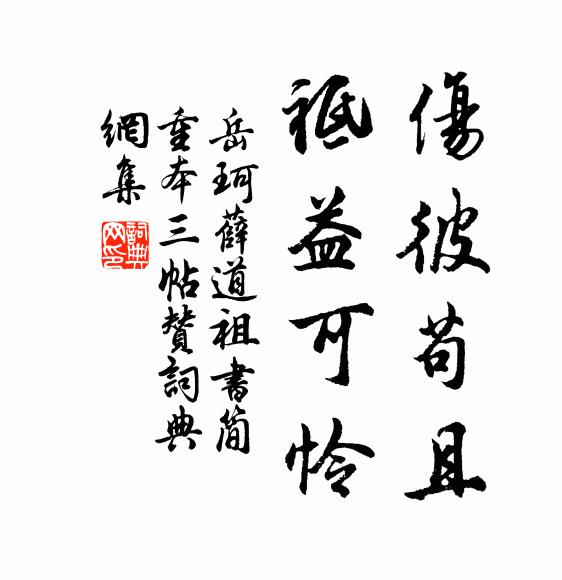 傷彼苟且
祗益可憐
岳珂薛道祖書簡
重本三帖贊詞典
網集
詞典網印